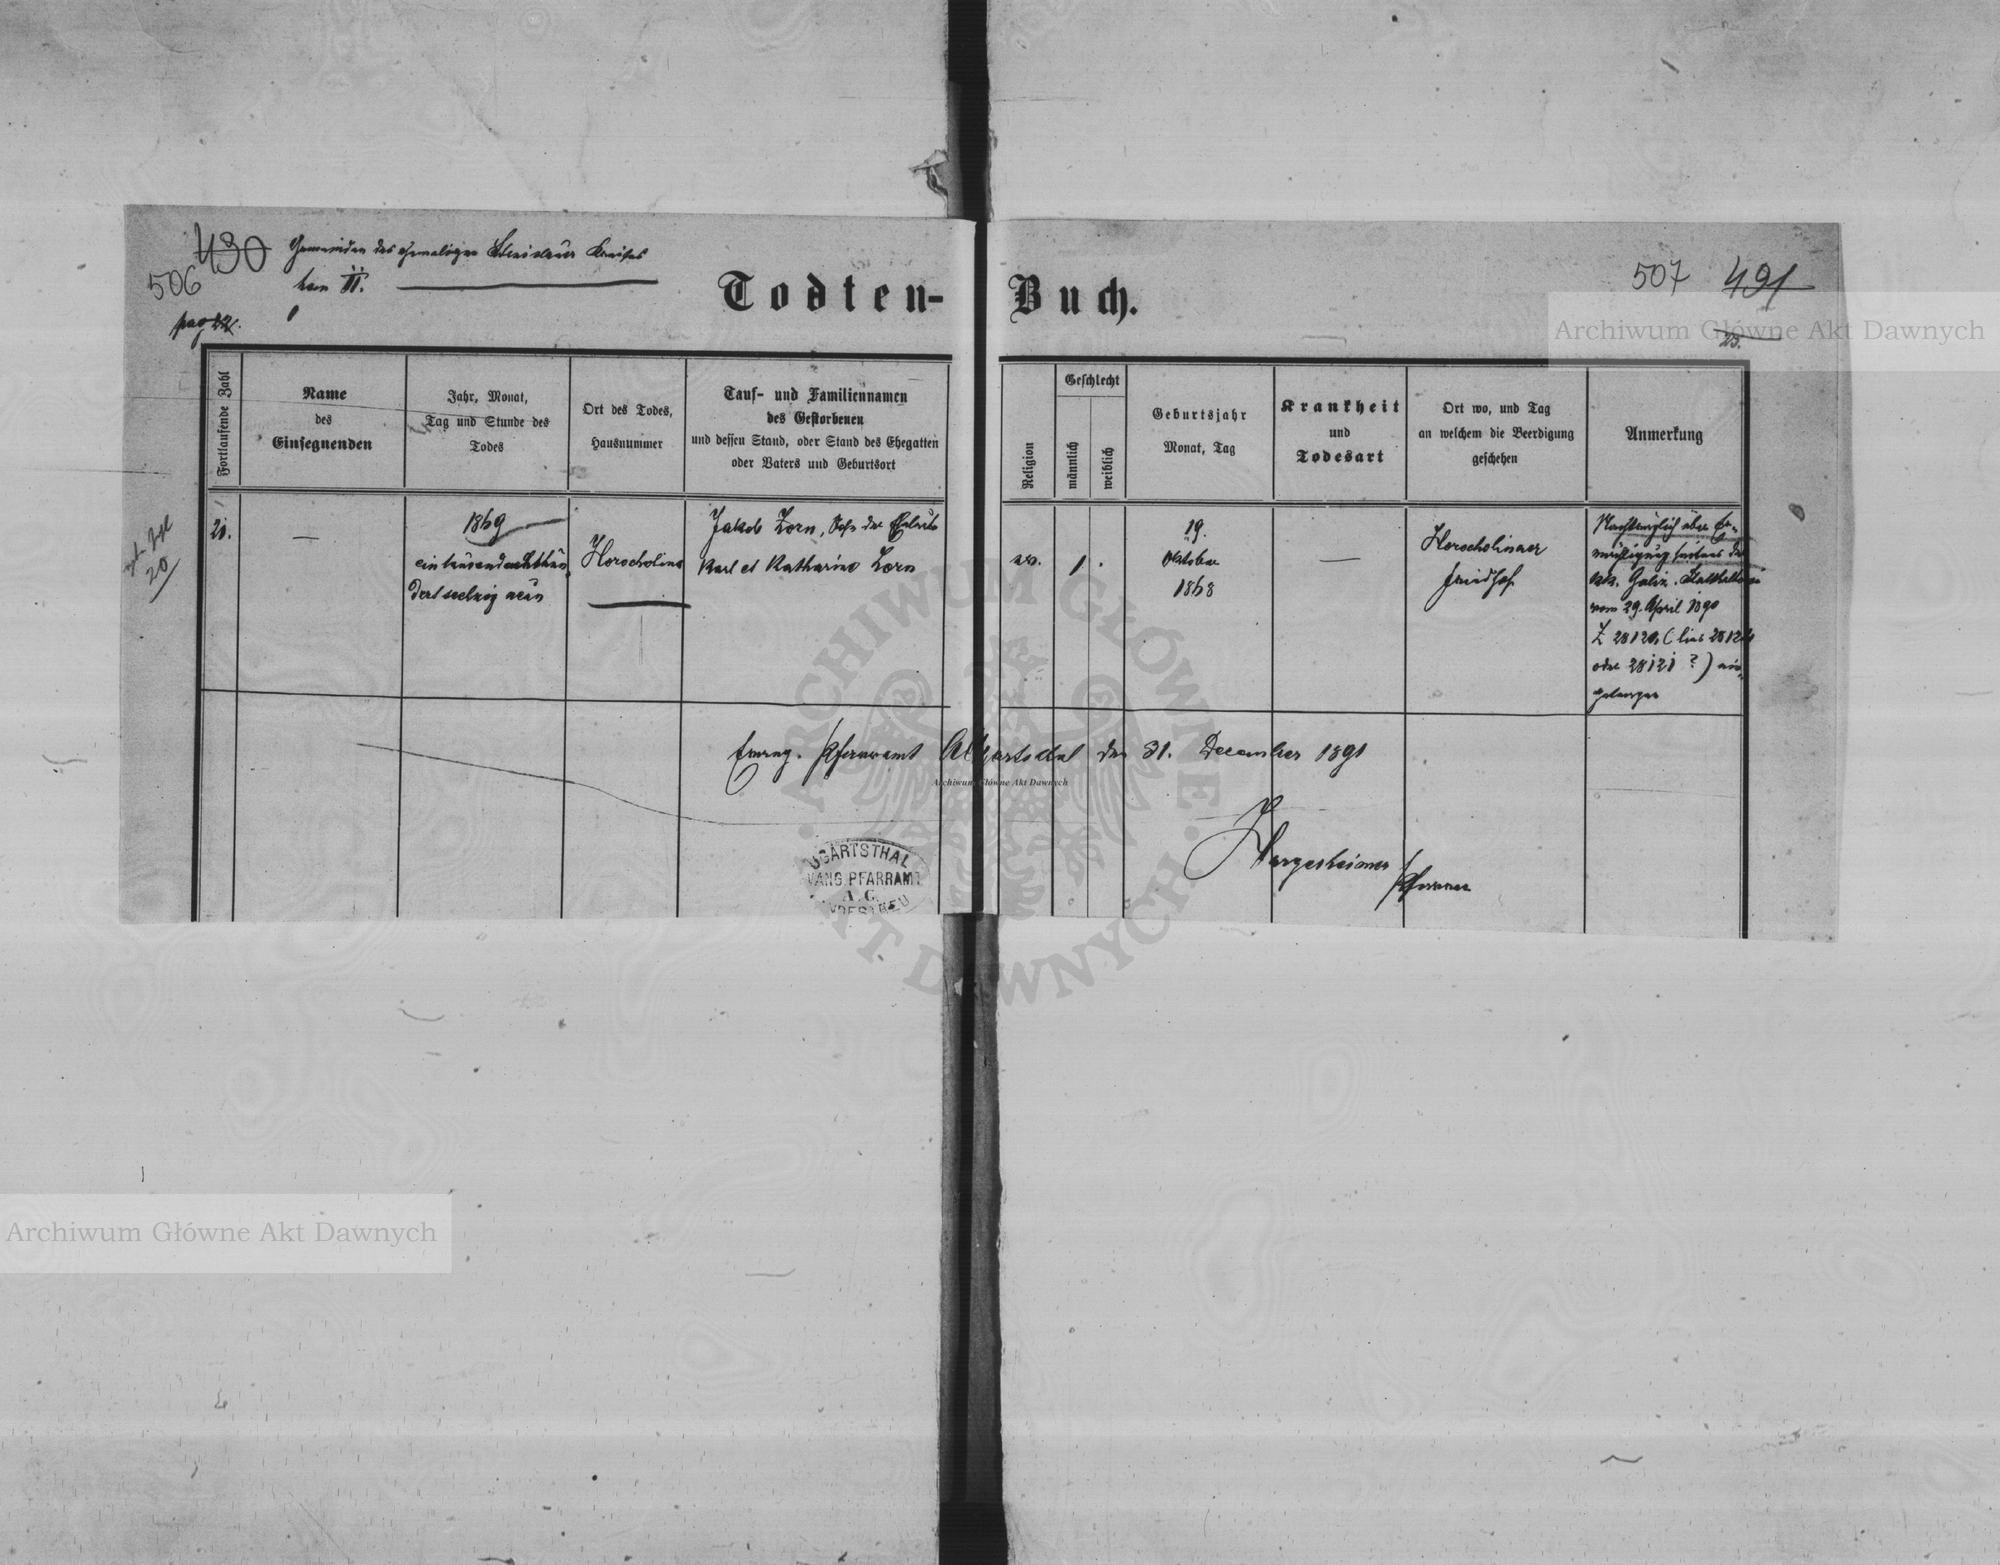 490
506
Gemeinden des ehemaligen Stanislauer Kreises
II.
pag 22.
Todten-
Buch.
507 491
23.
Archiwum Główne Akt Dawnych
Fortlaufende Zahl
Name
des
Einsegnenden
Jahr, Monat,
Tag und Stunde des
Todes
Ort des Todes,
Hausnummer
Tauf- und Familiennamen
des Gestorbenen
und dessen Stand, oder Stand des Ehegatten
oder Vaters und Geburtsort
Religion
Geschlecht
männlich
weiblich
Geburtsjahr
Monat, Tag
Krankheit
und
Todesart
Ort wo, und Tag
an welchem die Beerdigung
geschehen
Anmerkung
20
21.
—
1869
ein tausend achthun
dert sechzig neun
Horocholina
Jakob Zorn, Sohn der Eheleute
Karl et Katharina Zorn
ev.
1
.
19.
Oktober
1868
—
Horocholinaer
Friedhof
Nachträglich über Er-
mächtigung seitens der
kk. Galiz. Statthalterei
vom 29. April 1890
Z 28120, (lies 28124
oder 28121 ?) ein-
getragen
Evang. Pfarramt Ugartsthal den 31. December 1891
Archiwum Główne Akt Dawnych
Hargesheimer
Pfarrer
UGARTSTHAL
EVANG. PFARRAMT
A. C.
ARCHIWUM GŁÓWNE
AKT DAWNYCH
Archiwum Główne Akt Dawnych